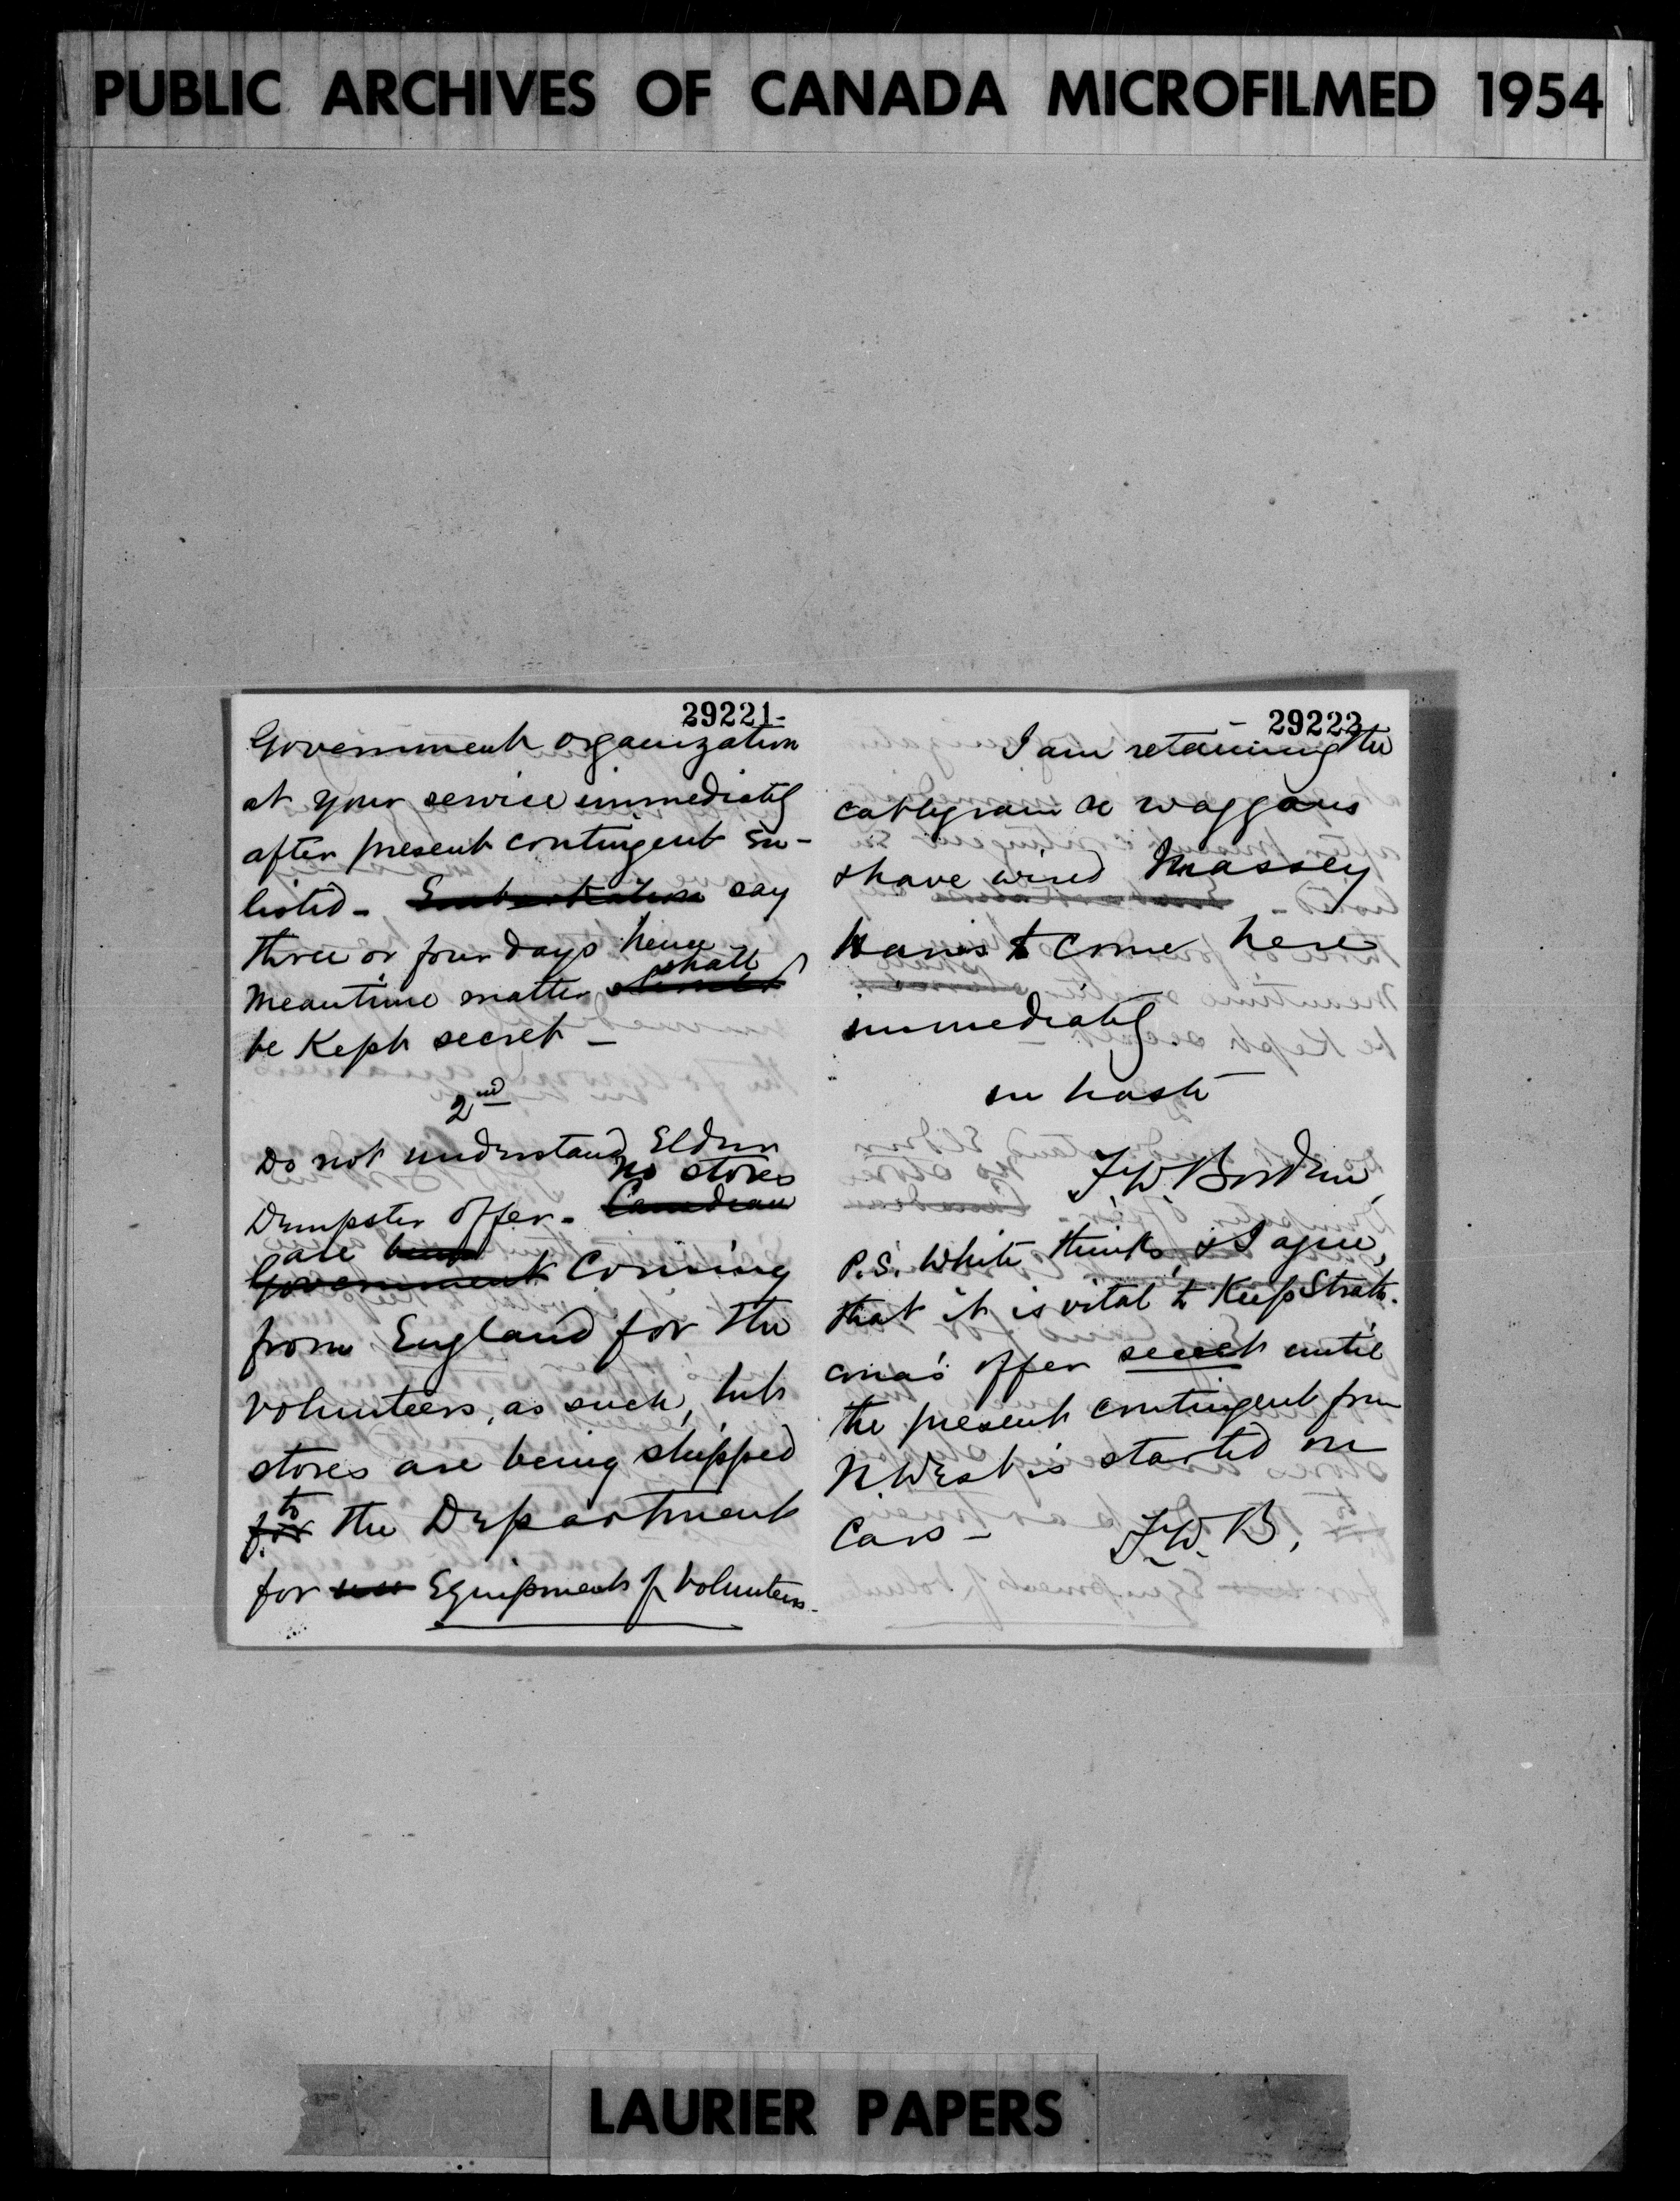 PUBLIC ARCHIVES OF CANADA MICROFILMED 1954
29221-
Government organization
at your service immediately
after present contingent en-
listed - Embarkation say
three or four days hence
shall
Meantime matter should
be Kept secret -
2nd
Do not understand Elder
no stores
Dempster offer - Canadian
are been
Government Coming
from England for the
volunteers, as such, but
stores are being shipped
to
for the Department
for use Equipment of Volunteers.
- 29222
I am retaining the
cablegram re waggons
& have wired Massey
Harris to come here
immediately
in haste
F.W. Borden
P.S. White thinks, & I agree,
that it is vital to Keep Strath-
cona's offer secret until
the present contingent from
N. West is started on
Cars - F.W.B.
LAURIER PAPERS